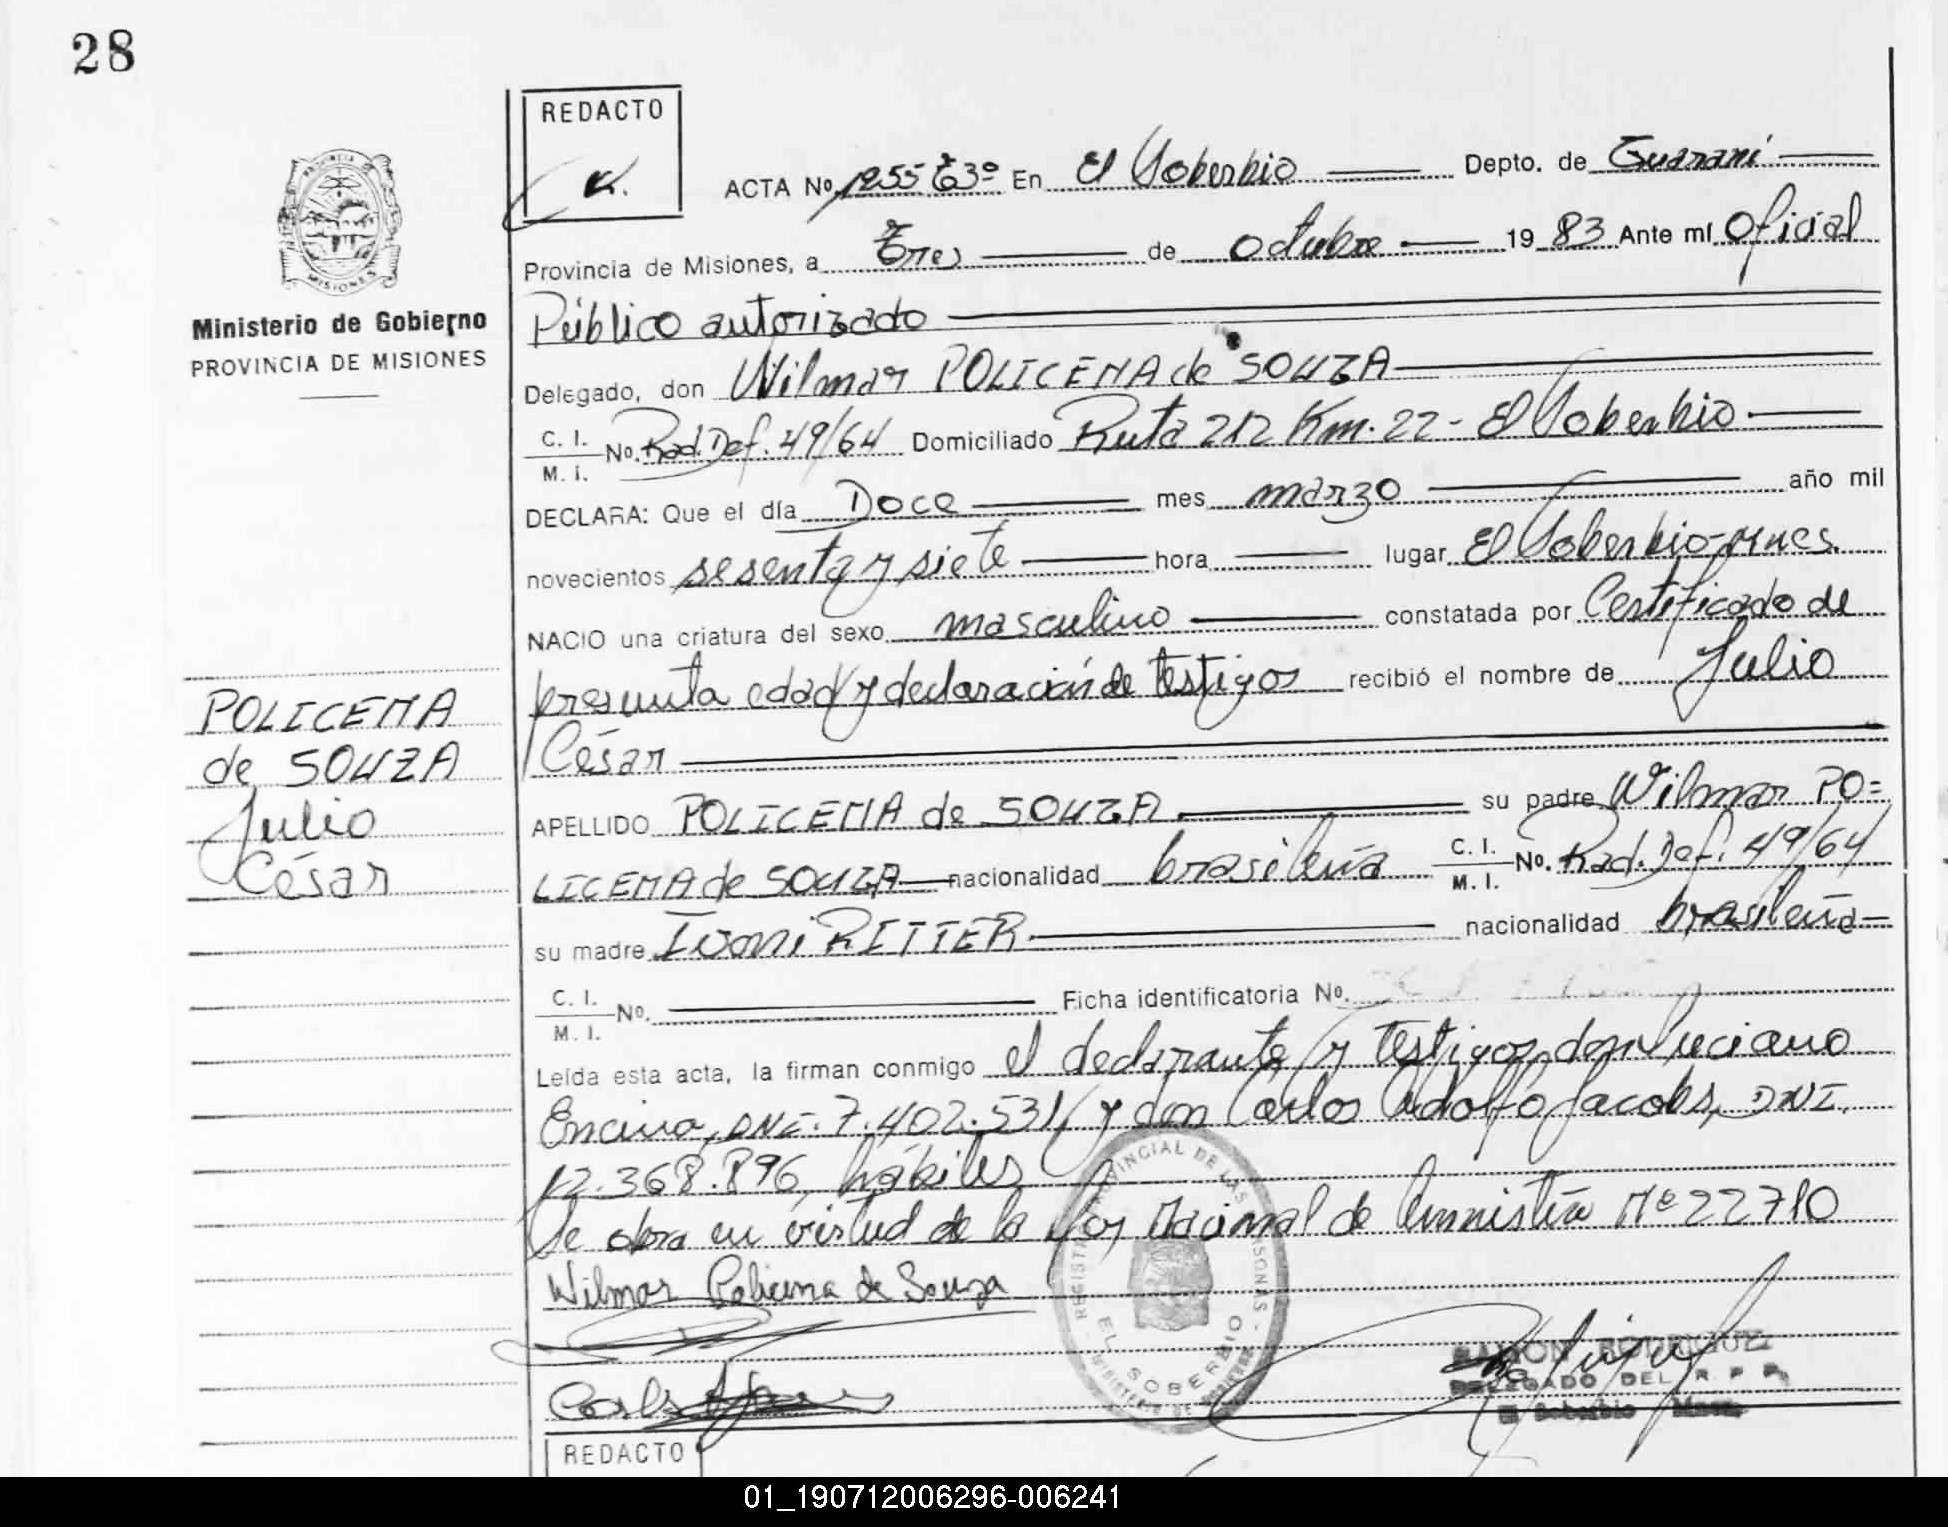 28
REDACTO
ACTA No. 1255 T3º En El Soberbio Depto. de Guaraní
Provincia de Misiones, a Tres de octubre 19 83 Ante mí Oficial
Público autorizado
Ministerio de Gobierno
PROVINCIA DE MISIONES
Delegado, don Wilmar POLICENA de SOUZA
C. I.
M. I. No. Rad. Def. 49/64 Domiciliado Ruta 212 Km. 22 - El Soberbio
DECLARA: Que el día Doce mes marzo año mil
novecientos sesenta y siete hora lugar El Soberbio-Mnes.
NACIO una criatura del sexo masculino constatada por Certificado de
presunta edad y declaración de testigos recibió el nombre de Julio
César
POLICENA
de SOUZA
Julio
César
APELLIDO POLICENA de SOUZA su padre Wilmar PO=
LICENA de SOUZA nacionalidad brasileña C. I.
M. I. No. Rad. Def. 49/64
su madre Ivoni RITTER nacionalidad brasileña=
C. I.
M. I. No. Ficha identificatoria No.
Leída esta acta, la firman conmigo el declarante y testigos, don Luciano
Encina, DNI. 7.402.531, y don Carlos Adolfo Jacobs, DNI.
12.368.896, hábiles
Se obra en virtud de la Ley Nacional de Amnistía Nº 22710
Wilmar Policena de Souza
REGISTRO PROVINCIAL DE LAS PERSONAS
EL SOBERBIO
RAMON RODRIGUEZ
DELEGADO DEL R. P. P.
El Soberbio Mnes.
REDACTO
01_190712006296-006241